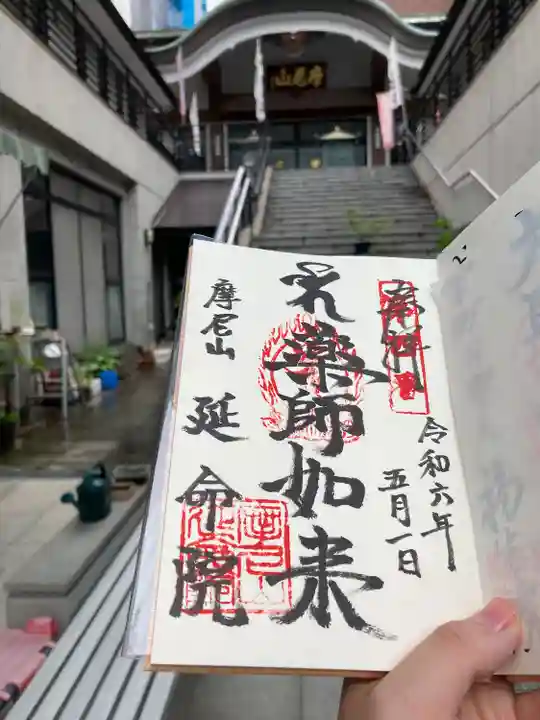 摩尼山
奉拝
令和六年
五月一日
薬師如来
摩尼山
延命院